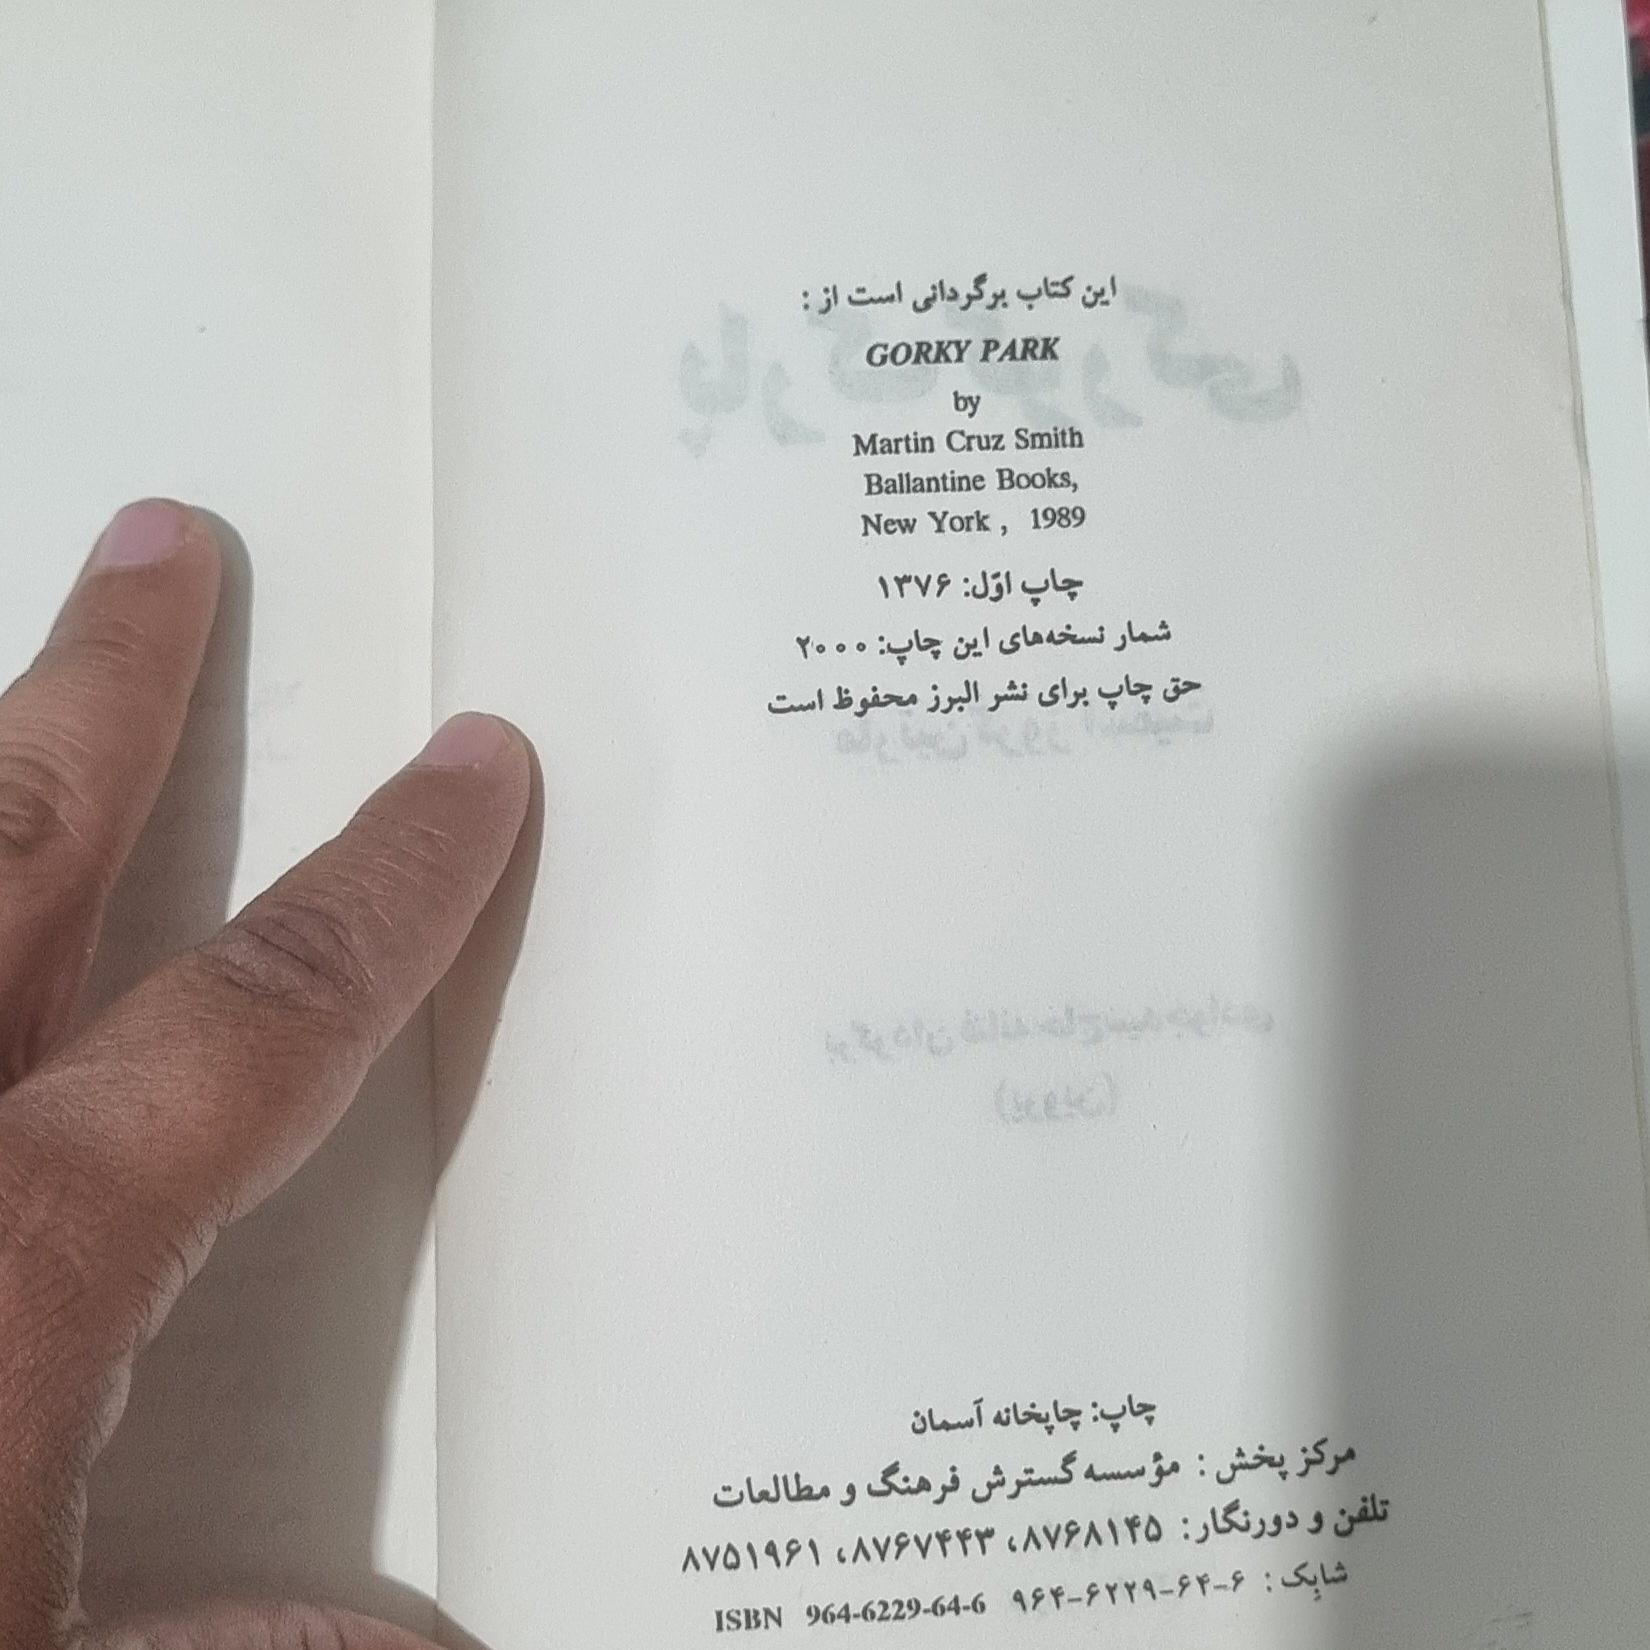 این کتاب برگردانی است از :
GORKY PARK
by
Martin Cruz Smith
Ballantine Books,
New York , 1989
چاپ اوّل: ۱۳۷۶
شمار نسخه‌های این چاپ: ۲۰۰۰
حق چاپ برای نشر البرز محفوظ است
چاپ: چاپخانه آسمان
مرکز پخش : مؤسسه گسترش فرهنگ و مطالعات
تلفن و دورنگار: ۸۷۶۸۱۴۵، ۸۷۶۷۴۴۳، ۸۷۵۱۹۶۱
شابِک : ۶-۶۴-۶۲۲۹-۹۶۴ ISBN 964-6229-64-6